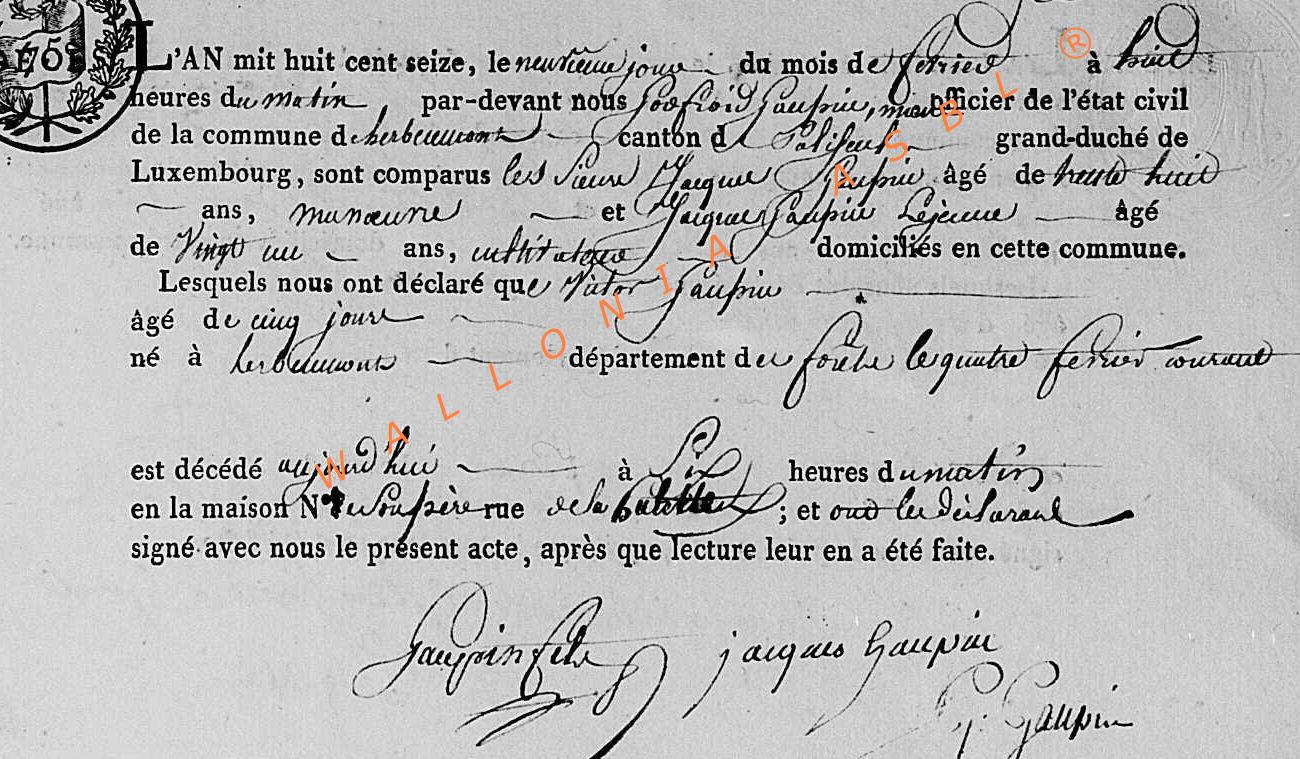 758
L'AN mil huit cent seize, le neuvieme jour du mois de fevrier à huit
heures du matin, par-devant nous Godfroid Gaupin, maire officier de l'état civil
de la commune d'herbeumont canton de Paliseul grand-duché de
Luxembourg, sont comparus les Sieurs Jacques Gaupin âgé de trente huit
ans, manœuvre et Jacques Gaupin Lejeune âgé
de Vingt un ans, cultivateur domiciliés en cette commune.
Lesquels nous ont déclaré que Victor Gaupin
âgé de cinq jours
né à herbeumont département des forêts le quatre fevrier courant
est décédé aujourd'hui à Six heures du matin
en la maison N° de Son père rue de la ; et ont les déclarant
signé avec nous le présent acte, après que lecture leur en a été faite.
Gaupin fils jacques Gaupin
G. Gaupin
WALLONIA ASBL ®